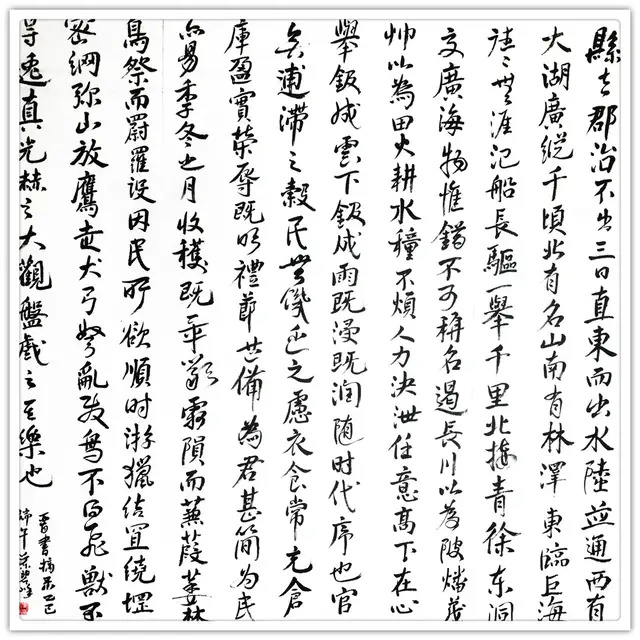 縣去郡治不出三日直東而出水陸並通西有
大湖廣縱千頃北有名山南有林澤東臨巨海
往々無涯氾船長驅一舉千里北接青徐东洞
交廣海物惟錯不可稱名遏長川以為陂燔茂
艸以為田火耕水種不煩人力決泄任意高下在心
舉鈒成雲下鈒成雨既浸既润随时代序也官
无逋滞之穀民無饑乏之慮衣食常充倉
庫盈實榮辱既明禮節甚備為君甚简為民
亦易季冬之月收穫既畢严霜隕而蒹葭萎林
鳥祭而罻羅设因民所欲順时游獵结罝绕堽
密網弥山放鷹走犬弓弩亂发鸟不得飛獸不
得逸真光赫之大觀盤戲之至樂也
晋書摘录乙巳
端午